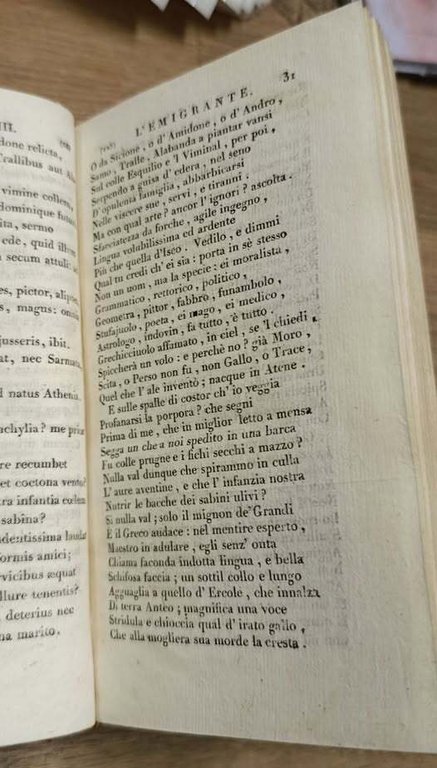 III.
done relicta,
Trallibus aut Al
vimine collem,
dominique futu
ita, sermo
ede, quid illum
secum attuli
es, pictor, alip
s, magus: omnia
jusseris, ibit.
at, nec Sarmata
d natus Athen
chylia? me prior
re recumbet
et coctona vento
tra infantia coelum
sabina?
dentissima laudat
formis amici;
vicibus æquat
llure tenentis?
deterius nec
na marito.
L'EMIGRANTE. 31
O da Sicione, o d'Amidone, o d'Andro,
Samo, Tralle, Alabanda a piantar vansi
Sul colle Esquilio e 'l Viminal, per poi,
Serpendo a guisa d'edera, nel seno
D'opulenta famiglia, abbarbicarsi
Nelle viscere sue, servi, e tiranni.
Ma con qual arte? ancor l'ignori? ascolta.
Sfacciatezza da forche, agile ingegno,
Lingua volubilissima ed ardente
Più che quella d'Iseo. Vedilo, e dimmi
Qual tu credi ch'ei sia: porta in sè stesso
Non un uom, ma la specie: ei moralista,
Grammatico, rettorico, politico,
Geometra, pittor, fabbro, funambolo,
Stufajuolo, poeta, ei mago, ei medico,
Astrologo, indovin, fa tutto, è tutto.
Grechicciuolo affamato, in ciel, se 'l chiedi,
Spiccherà un volo: e perchè no? già Moro,
Scita, o Perso non fu, non Gallo, o Trace,
Quel che l'ale inventò; nacque in Atene.
E sulle spalle di costor ch'io veggia
Profanarsi la porpora? che segni
Prima di me, che in miglior letto a mensa
Segga un che a noi spedito in una barca
Fu colle prugne e i fichi secchi a mazzo?
Nulla val dunque che spirammo in culla
L'aure aventine, e che l'infanzia nostra
Nutrir le bacche dei sabini ulivi?
Sì nulla val; solo il mignon de' Grandi
È il Greco audace: nel mentire esperto,
Maestro in adulare, egli senz'onta
Chiama faconda indotta lingua, e bella
Schifosa faccia; un sottil collo e lungo
Agguaglia a quello d'Ercole, che innalza
Di terra Anteo; magnifica una voce
Stridula e chioccia qual d'irato gallo,
Che alla mogliera sua morde la cresta.